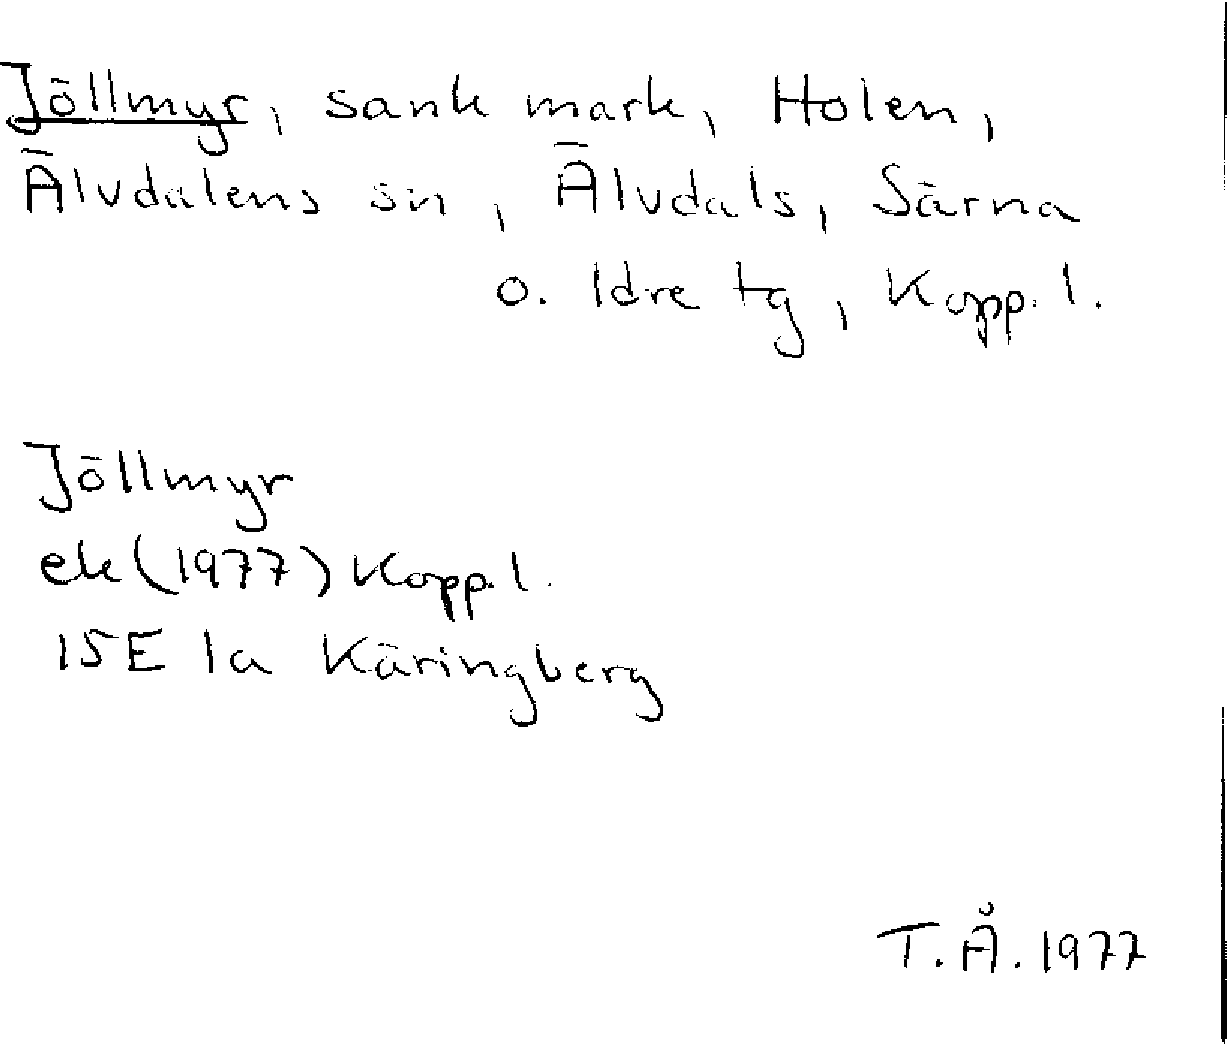 Jöllmyr, sank mark, Holen,
Älvdalens sn, Älvdals, Särna
o. Idre tg, Kopp. l.
Jöllmyr
ek (1977) Kopp. l.
15E 1a Käringberg
T.Å. 1977